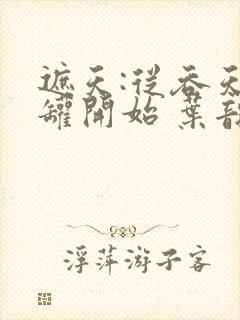 遮天:從吞天
罐開始 葉韻
浮萍游子客